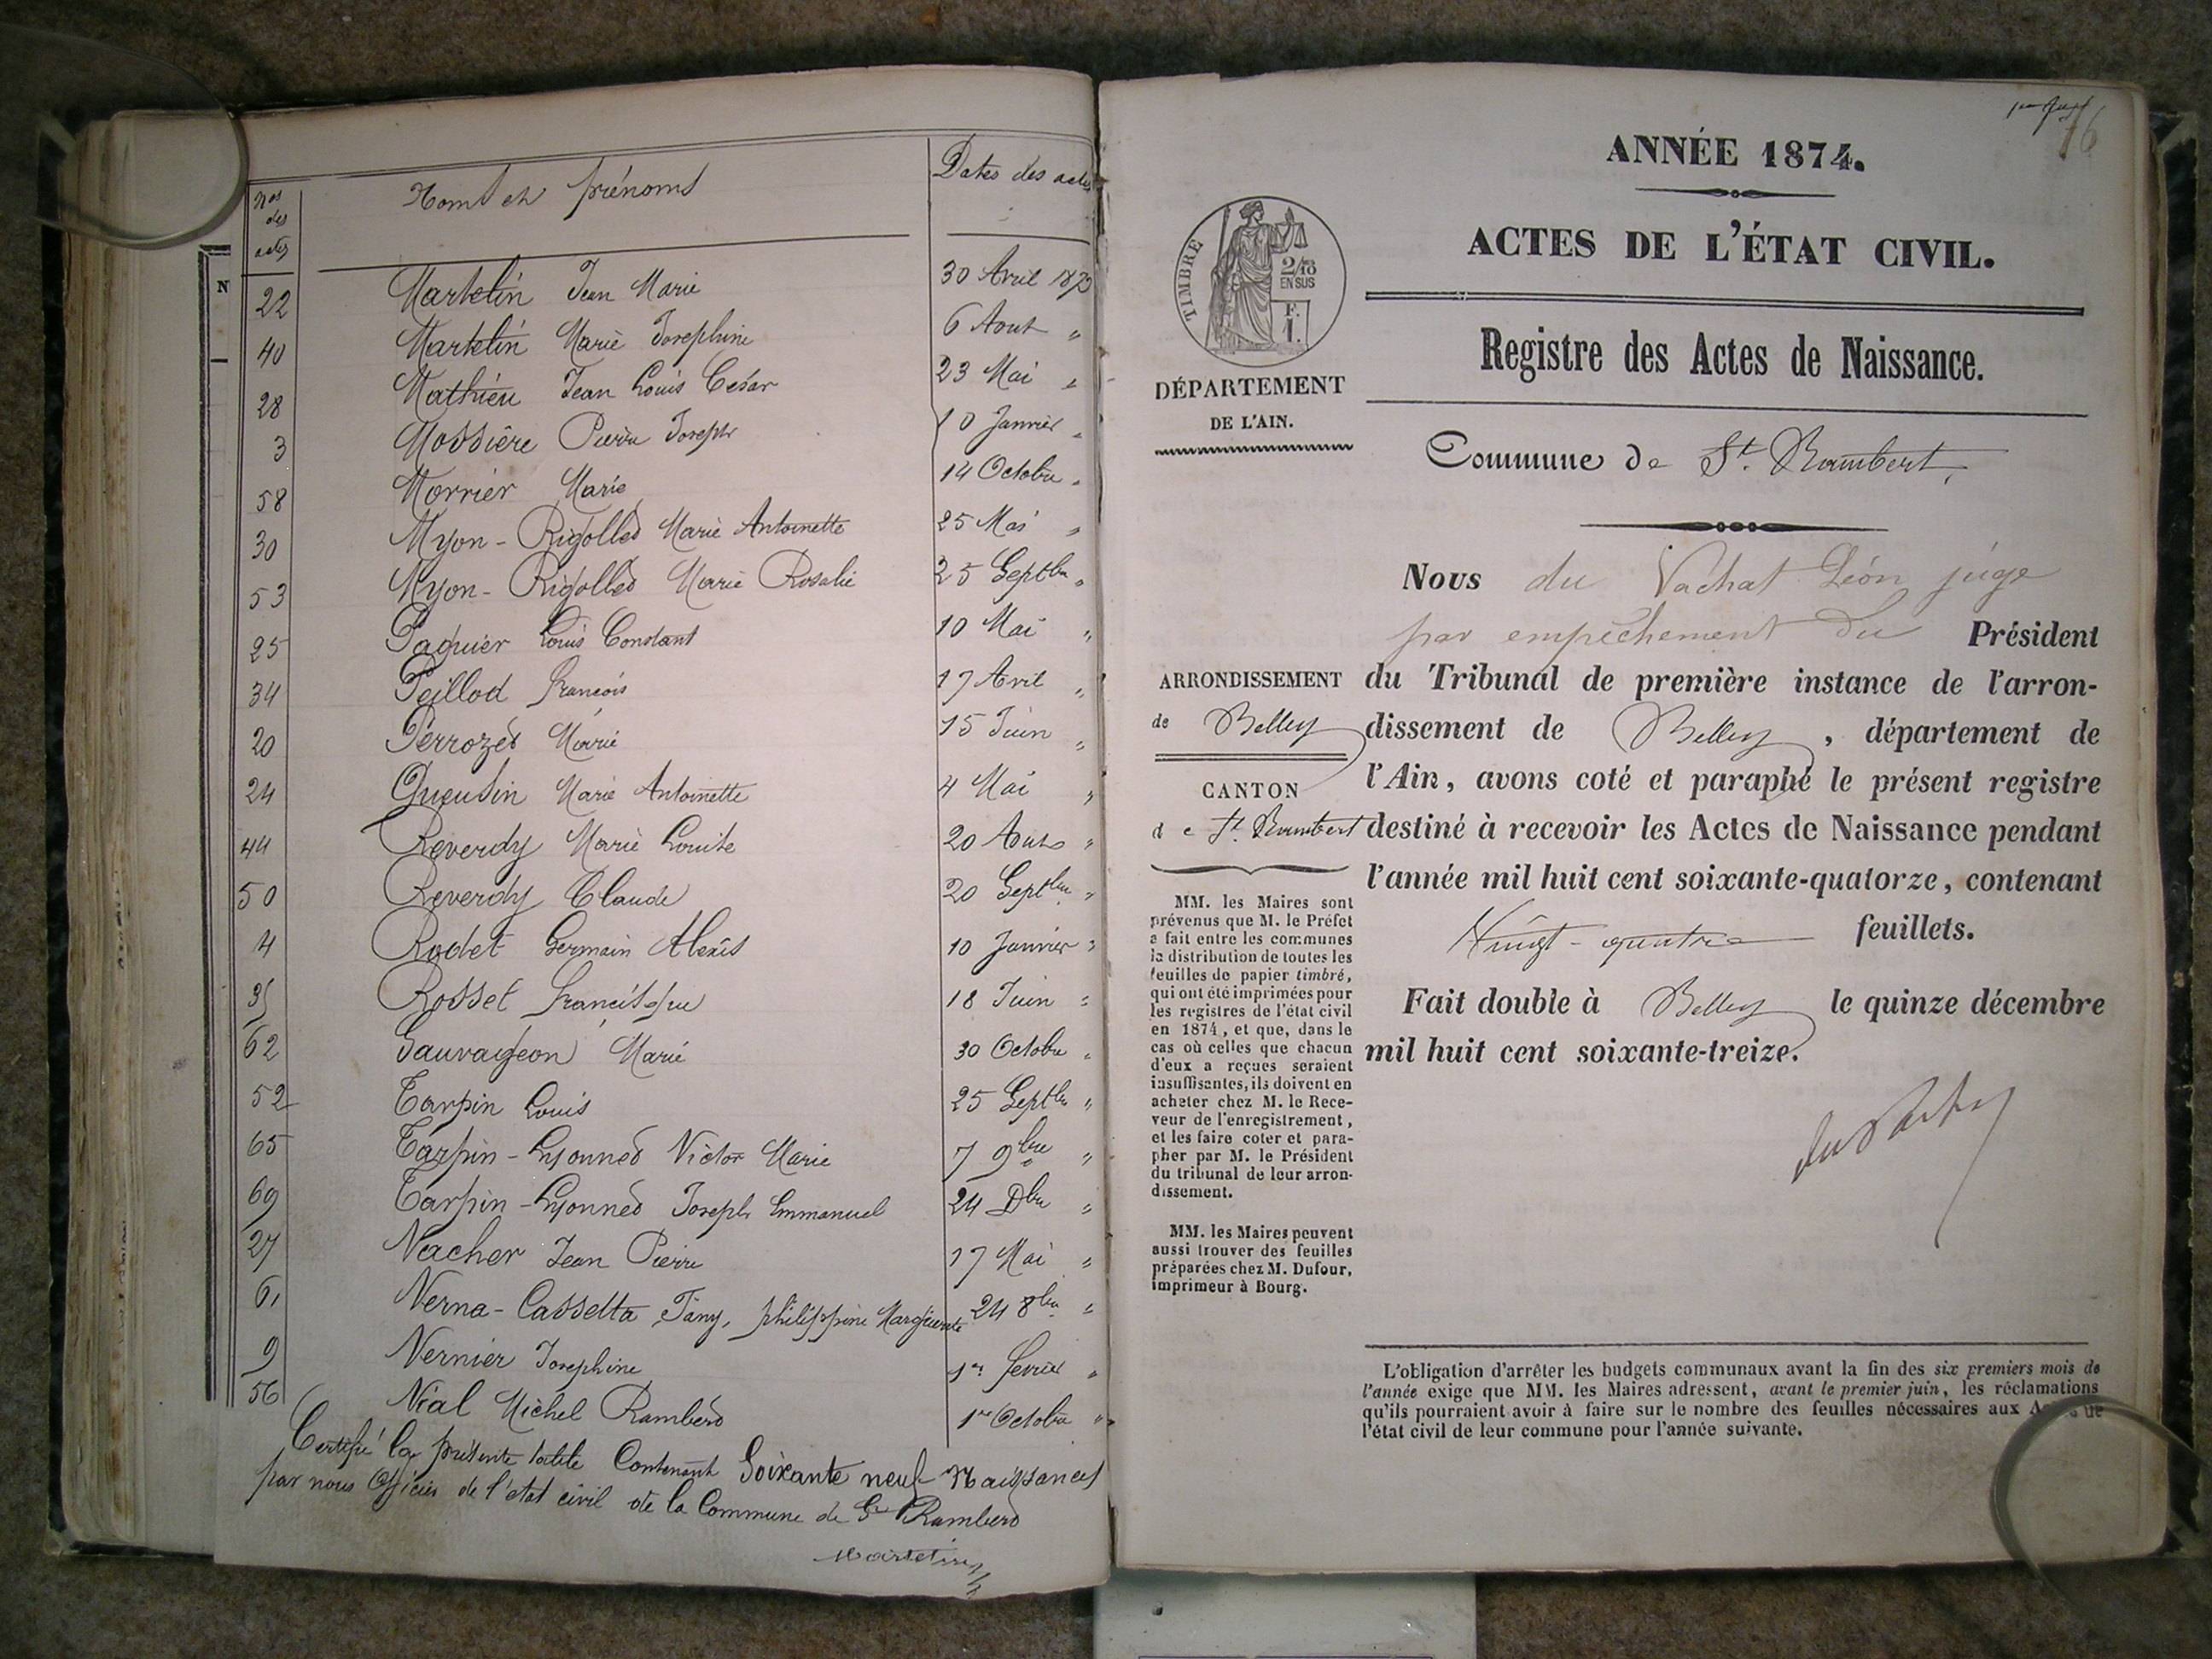 Nos des actes
Noms et prénoms
Dates des actes
N
22 Martelin Jean Marie 30 Avril 1873
40 Martelin Marie Josephine 6 Aout "
28 Mathieu Jean Louis César 23 Mai "
3 Mossière Pierre Joseph 10 Janvier "
58 Morrier Marie 14 Octobre "
30 Myon-Rigollet Marie Antoinette 25 Mai "
53 Myon-Rigollet Marie Rosalie 25 Septbre "
25 Paquier Louis Constant 10 Mai "
34 Peillod François 17 Avril "
20 Perrozet Marie 15 Juin "
24 Queusin Marie Antoinette 4 Mai "
44 Reverdy Marie Louise 20 Aout "
50 Reverdy Claude 20 Septbre "
4 Rodet Germain Alexis 10 Janvier "
35 Rosset Francisque 18 Juin "
62 Sauvageon Marie 30 Octobre "
52 Tarpin Louis 25 Septbre "
65 Tarpin-Lyonnet Victor Marie 7 9bre "
69 Tarpin-Lyonnet Joseph Emmanuel 24 Dbre "
27 Vacher Jean Pierre 17 Mai "
61 Verna-Cassetta Fany, philippine Marguerite 24 8bre "
9 Vernier Josephine 1er fevrier "
56 Vial Michel Rambert 1er Octobre "
Certifié la présente table Contenant Soixante neuf Naissances
par nous Officier de l'état civil de la Commune de St Rambert
Martelin
76
ANNÉE 1874.
ACTES DE L'ÉTAT CIVIL.
TIMBRE
2/10
EN SUS
F.
1.
Registre des Actes de Naissance.
DÉPARTEMENT
DE L'AIN.
Commune de St. Rambert
Nous du Vachat Léon juge
par empêchement du Président
du Tribunal de première instance de l'arron-
dissement de Belley, département de
l'Ain, avons coté et paraphé le présent registre
destiné à recevoir les Actes de Naissance pendant
l'année mil huit cent soixante-quatorze, contenant
Vingt-quatre feuillets.
Fait double à Belley le quinze décembre
mil huit cent soixante-treize.
ARRONDISSEMENT
de Belley
CANTON
de St. Rambert
MM. les Maires sont
prévenus que M. le Préfet
a fait entre les communes
la distribution de toutes les
feuilles de papier timbré,
qui ont été imprimées pour
les registres de l'état civil
en 1874, et que, dans le
cas où celles que chacun
d'eux a reçues seraient
insuffisantes, ils doivent en
acheter chez M. le Rece-
veur de l'enregistrement,
et les faire coter et para-
pher par M. le Président
du tribunal de leur arron-
dissement.
MM. les Maires peuvent
aussi trouver des feuilles
préparées chez M. Dufour,
imprimeur à Bourg.
L'obligation d'arrêter les budgets communaux avant la fin des six premiers mois de
l'année exige que MM. les Maires adressent, avant le premier juin, les réclamations
qu'ils pourraient avoir à faire sur le nombre des feuilles nécessaires aux Actes de
l'état civil de leur commune pour l'année suivante.